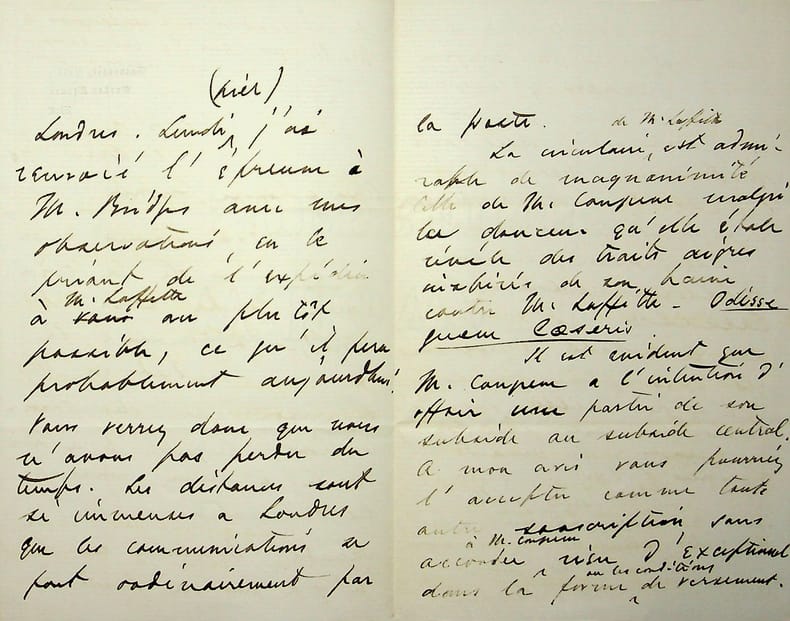 (hier)
Londres. Lundi, j'ai
renvoyé l'épreuve à
M. Bridges avec mes
observations, en le
priant de l'expédier
M. Laffitte
à vous au plus tôt
possible, ce qu'il fera
probablement aujourd'hui.
Vous verrez donc que nous
n'avons pas perdu du
temps. Les distances sont
si immenses a Londres
que les communications se
font ordinairement par
la poste.
de M. Laffitte
La circulaire, est admi-
rable de magnanimité
celle de M. Congreve malgré
les douceurs qu'elle étale
révèle des traits aigres
inspirés de son haine
contre M. Laffitte - Odisse
quem læseris.
Il est evident que
M. Congreve a l'intention d'
offrir une partie de son
subside au subside central.
A mon avis vous pourriez
l'accepter comme toute
autre souscription sans
à M. Congreve
accorder rien d'exceptionel
ou les conditions
dans la forme de versement.